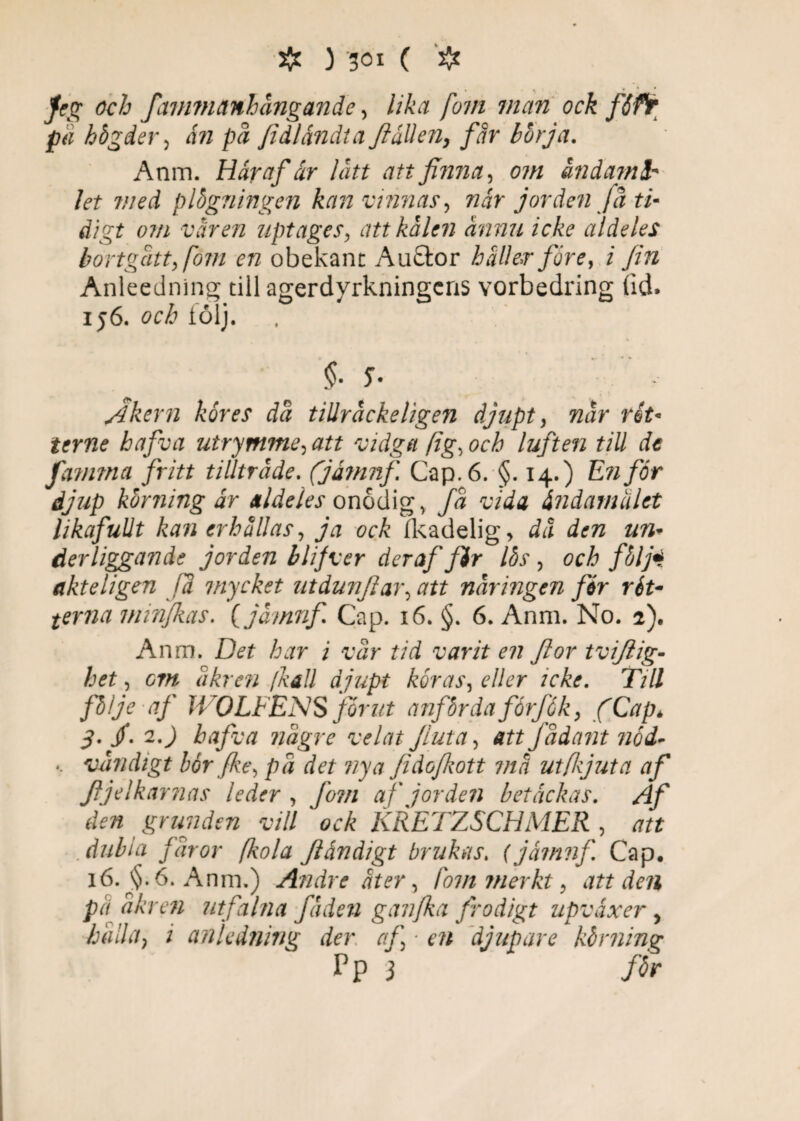 ☆ ) 301 ( ☆
ſeg och ſammanhängande, lika ſom man ock förr
på högder, än på ſidländta ſtällen, får börja.
Anm. Häraf är lätt att finna, om ändamå-
let med plögningen kan vinnas, när jorden ſå ti-
digt om våren uptages, att kålen ännu icke aldeles
bortgått, ſom en obekant Auctor håller före, i ſin
Anleedning till agerdyrkningens vorbedring ſid.
156. och följ.
§. 5.
Åkern köres då tillräckeligen djupt, när röt-
terne hafva utrymme, att vidga ſig, och luften till de
ſamma fritt tillträde. (jämnf. Cap. 6. §. 14.) En för
djup körning är aldeles onödig, ſå vida ändamålet
likafullt kan erhållas, ja ock ſkadelig, då den un-
derliggande jorden blifver deraf för lös, och följ-
akteligen ſå mycket utdunſtar, att näringen för röt-
terna minſkas. (jämnf. Cap. 16. §. 6. Anm. No. 2).
Anm. Det har i vår tid varit en ſtor tviſtig-
het, om åkren ſkall djupt köras, eller icke. Till
följe af WOLFENS förut anförda förſök, (Cap.
3. §. 2.) hafva någre velat ſluta, att ſådant nöd-
vändigt bör ſke, på det nya ſidoſkott må utſkjuta af
ſtjelkarnas leder, ſom af jorden betäckas. Af
den grunden vill ock KRETZSCHMER, att
dubla fåror ſkola ſtändigt brukas. (jämnf. Cap.
16. §. 6. Anm.) Andre åter, ſom merkt, att den
på åkren utfalna ſäden ganſka frodigt upväxer,
hålla, i anledning der af, en djupare körning
Pp 3 för